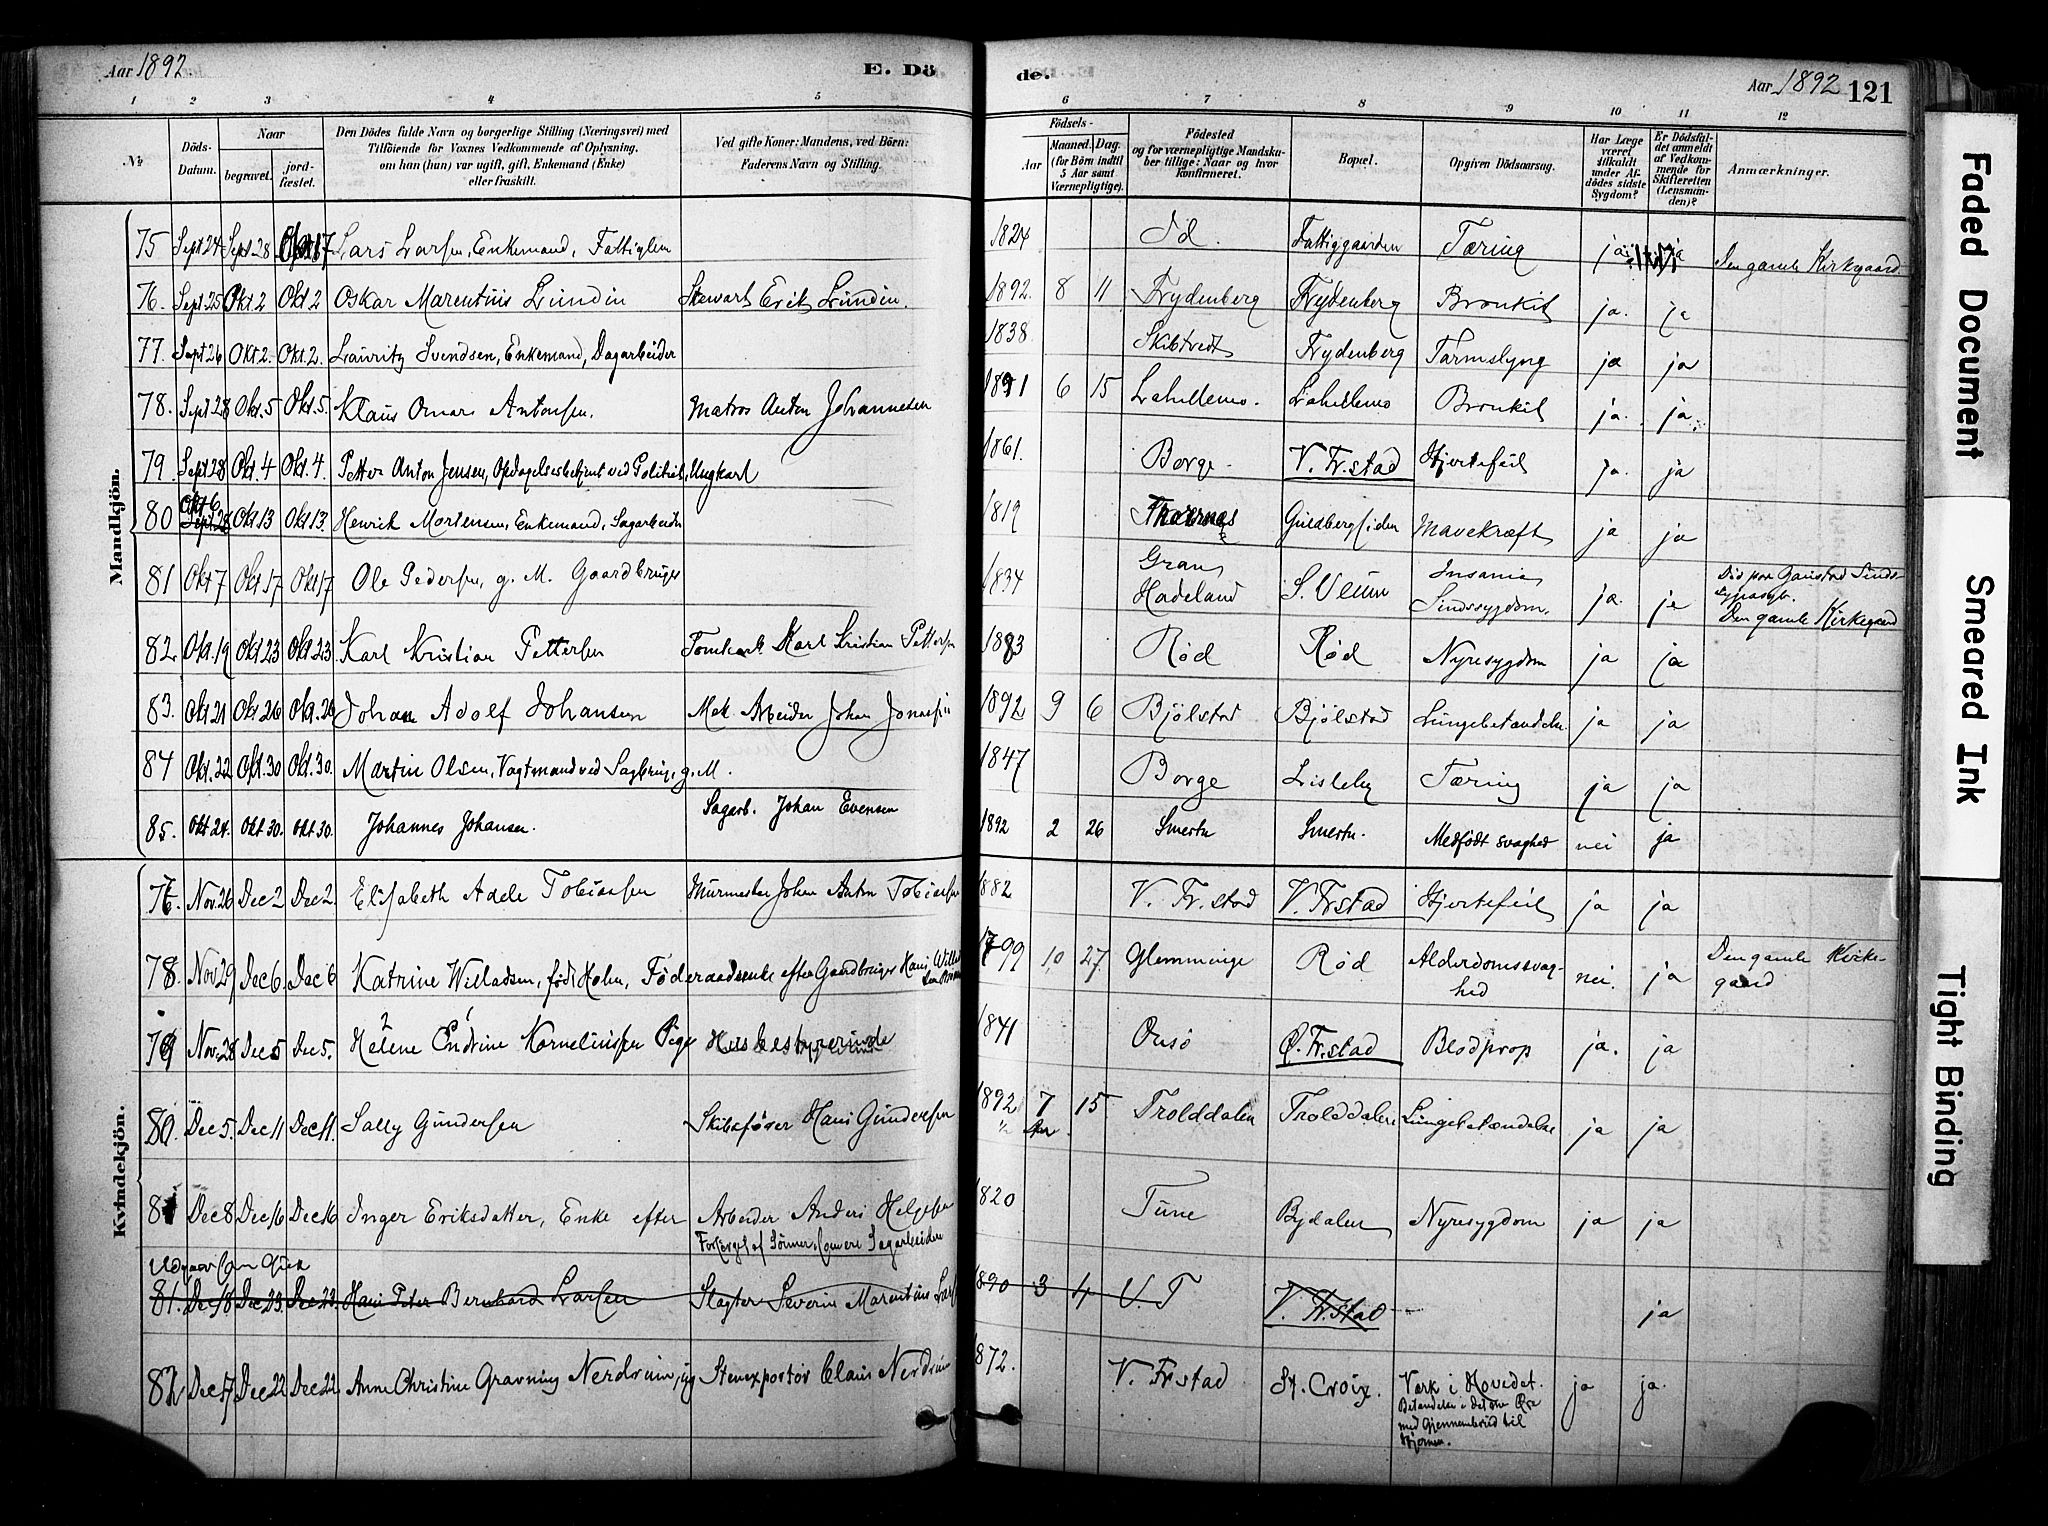 Aar 1892 E. Dö de. Aar 1892 121
1 2 3 4 5 6 7 8 9 10 11 12
№
Döds-Datum.
Naar
begravet.
jord-fæstet.
Den Dödes fulde Navn og borgerlige Stilling (Næringsvei) med
Tilföiende for Voxnes Vedkommende af Oplysning,
om han (hun) var ugift, gift, Enkemand (Enke)
eller fraskilt.
Ved gifte Koner: Mandens, ved Börn:
Faderens Navn og Stilling.
Födsels-
Aar
Maaned. Dag.
(for Börn indtil
5 Aar samt
Værnepligtige).
Födested
og for værnepligtige Mandska-
ber tillige: Naar og hvor
konfirmeret.
Bopæl.
Opgiven Dödsaarsag.
Har Læge
været
tilkaldt
under Af-
dödes sidste
Sygdom?
Er Dödsfal-
det anmeldt
af Vedkom-
mende for
Skifteretten
(Lensman-
den)?
Anmærkninger.
Mandkjön.
75 Sept 24 Sept 28 17 Lars Larsen, Enkemand, Fattiglem 1824 Id. Fattiggaarden Tæring ja ja Den gamle Kirkegaard
76. Sept 25 Okt 2 Okt 2 Oskar Marentius Lundin Stewart Erik Lundin. 1892. 8 11 Frydenberg Frydenberg Bronkit ja. ja
77. Sept 26 Okt 2. Okt. 2. Lauritz Svendsen, Enkemand, Dagarbeider 1838 Skibtvedt Frydenberg Tarmslyng ja ja
78. Sept 28 Okt. 5 Okt. 5. Klaus Omar Antonsen. Matros Anton Johannesen 1891 6 15 Lahellemo. Lahellemo Bronkit ja. ja.
79. Sept 28 Okt. 4 Okt. 4. Petter Anton Jensen, Opdagelsesbetjent ved Politiet, Ungkarl 1861. Borge. V. Fr.stad Hjertefeil ja. ja
80 Okt 6 Sept. 28 Okt 13 Okt 13. Henrik Mortensen, Enkemand, Sagarbeider 1819 Guldbergsiden Mavekræft ja ja
81 Okt 7 Okt 17 Okt 17 Ole Pedersen, g. M. Gaardbruger 1834 Gran Hadeland S. Veum Insania Sindssygdom. ja. ja Död paa Gaustad Sinds-
Den gamle Kirkegaard
82. Okt. 19 Okt 23 Okt. 23 Karl Kristian Pettersen Karl Kristian Pettersen 1883 Rød Rød Nyresygdom ja ja
83. Okt 21 Okt 26 Okt. 26 Johan Adolf Johansen Mek Arbeider Johan 1892 9 6 Bjølstad Bjølstad Lungebetændelse ja ja
84 Okt. 22 Okt. 30 Okt. 30. Martin Olsen, Vagtmand ved Sagbrug, g. M. 1847 Borge Lisleby Tæring ja ja
85. Okt 24. Okt 30. Okt 30. Johannes Johansen. Sagarb. Johan Evensen 1892 2 26 Smertu Smertu. Medfödt svaghed nei ja
Kvindekjön.
Nov. 26 Dec 2 Dec 2 Elisabeth Adele Tobiassen Murmester Johan Anton Tobiassen 1882 V. Fr. stad V. Fr stad Hjertefeil ja ja
78. Nov 29 Dec 6. Dec 6 Katrine Willadsen, födt Holm, Föderaadsenke efter Gaardbruger Hans 1799 10 27 Glemminge Rød Alderdomssvag-
hed nei. ja Den gamle Kirke-
gaard
79 Nov. 28 Dec 5 Dec 5. Helene Endrine Kornelinssen Pige Husbestyrerinde 1841 Onsö Ø. Fr.stad Blodprop ja. ja
80. Dec 5. Dec 11 Dec 11. Sally Gundersen Skibsfører Hans Gundersen 1892 7 15 Trolddalen Trolddalen Lungebetændelse ja ja
81 Dec 8 Dec 16 Dec 16 Inger Eriksdatter, Enke efter Arbeider Anders Helgesen 1820 Tune Bydalen Nyresygdom ja ja
Forsörget af Sönner, som ere Sagarbeidere
81. Dec 18. Dec 23. Dec 23. Hans Peter Bernhard Larsen Slagter Severin Marentius 1890 3 4 V. F V. Fr.stad ja
82 Dec 17 Dec 22 Dec 22. Anne Christine Gravning Nerdrum, ug Stenexportør Claus Nerdrum 1872. V. Fr stad St. Croix. Værk i Hovedet.
Betændelse i det ene Øre
med Gjennembrud til
Hjernen. ja ja.
Faded Document
Smeared Ink
Tight Binding